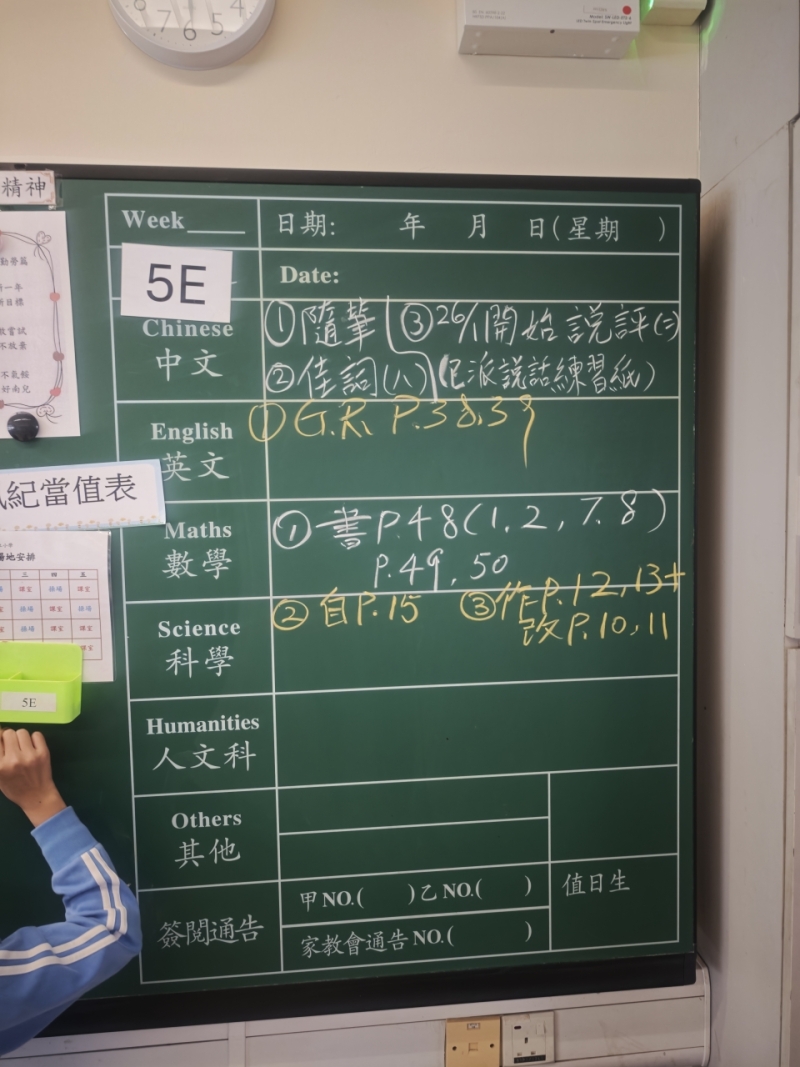 精神
Week
日期: 年 月 日(星期 )
5E
Date:
Chinese
中文
①隨筆
③26/1開始說評(二)
②佳詞(八)
(已派說話練習紙)
English
英文
① G.R. P.38,39
紀當值表
Maths
數學
①書P.48(1.2,7.8)
P.49,50
場地安排
三 四 五
Science
科學
②自P.15
③作P.12,13+
改P.10,11
5E
Humanities
人文科
Others
其他
簽閱通告
甲 NO.( )乙 NO.( )
家教會通告 NO.( )
值日生